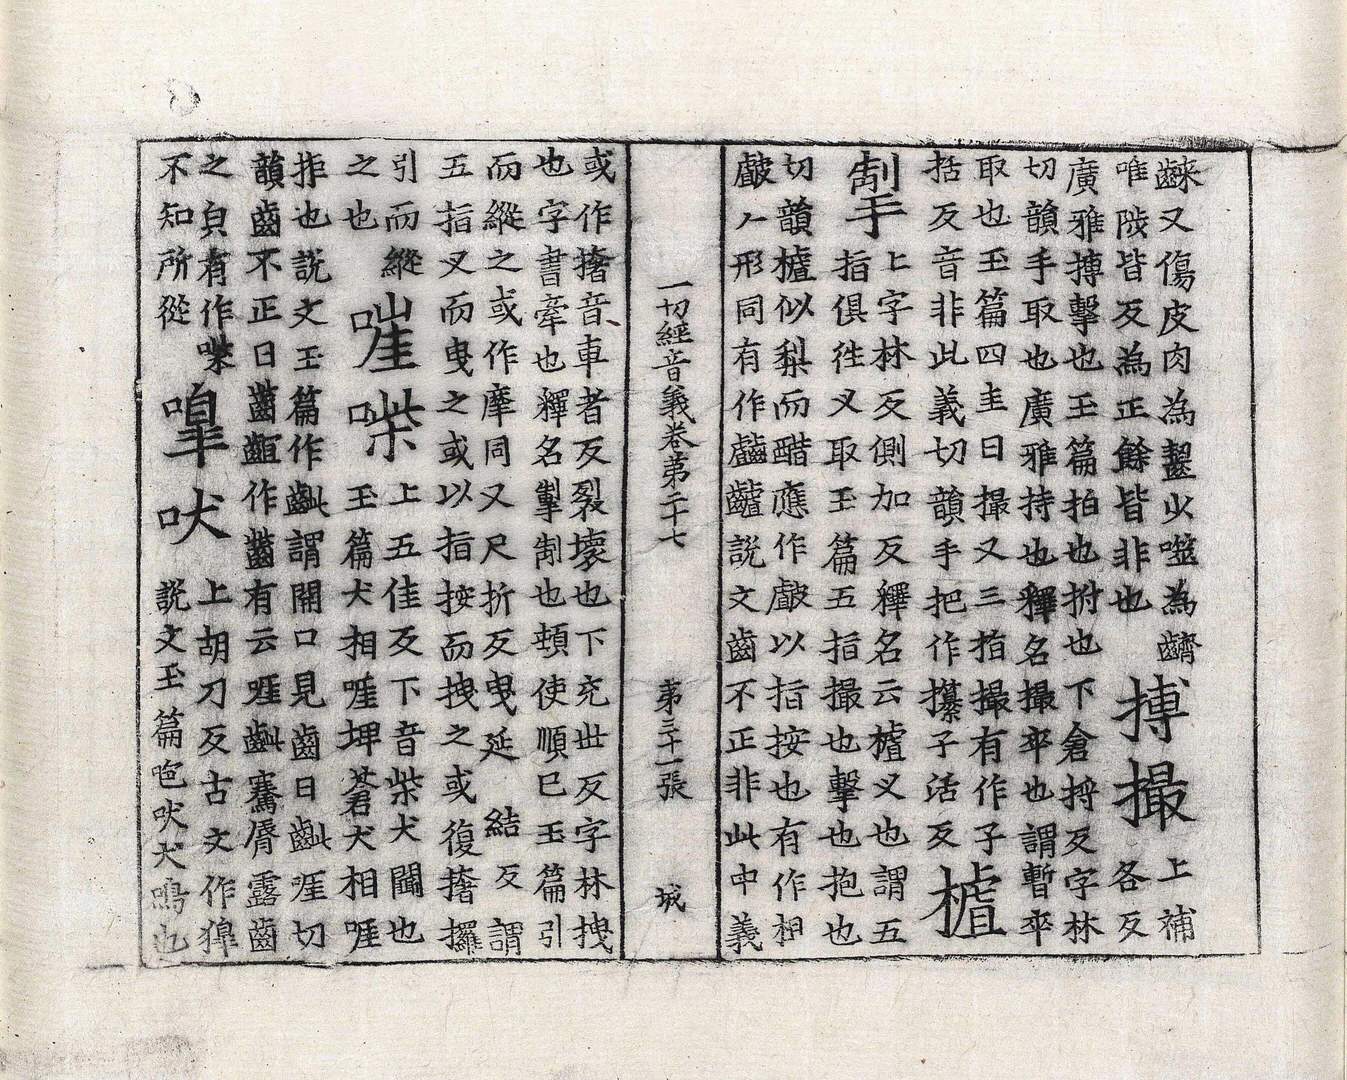 齩又傷皮肉為齧以噬為齰
唯陟皆反為正餘皆非也
搏撮
上補
各反
廣雅搏擊也玉篇拍也拊也下倉捋反字林
切韻手取也廣雅持也釋名撮卒也謂暫卒
取也玉篇四圭曰撮又三指撮有作子
括反音非此義切韻手把作攥子活反
樝
掣手
上字林反側加反釋名云樝叉也謂五
指俱往叉取玉篇五指撮也擊也抱也
切韻樝似梨而醋應作皻以指按也有作柤
皻人形同有作齇說文齒不正非此中義
一切經音義卷第二十七 第三十一張 城
或作撦音車者反裂壞也下充世反字林拽
也字書牽也釋名掣制也頓使順己玉篇引
而縱之或作摩同又尺折反曳延結反謂
五指叉而曳之或以指按而拽之或復撦攞
引而縱
之也
嘊喍
上五佳反下音柴犬鬪也
玉篇犬相啀埤蒼犬相啀
拒也說文玉篇作齜謂開口見齒曰齜啀切
韻齒不正曰齹齟作齹有云啀齜騫脣露齒
之皃有作喍
不知所從
嘷吠
上胡刀反古文作獋
說文玉篇咆吠犬鳴也